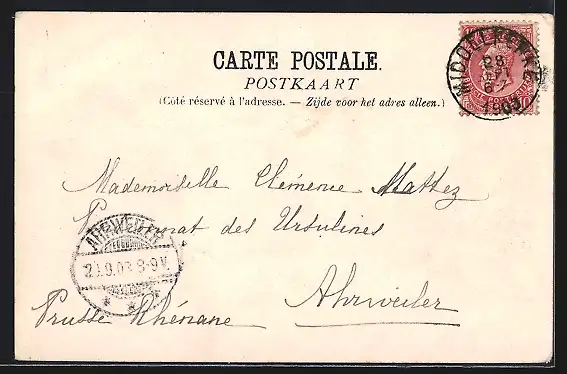 CARTE POSTALE.
POSTKAART
(Côté réservé à l'adresse. — Zijde voor het adres alleen.)
MIDDELKERKE
28
6-7
1903
Mademoiselle Clémence Mattez
Pensionnat des Ursulines
AHRWEILER
8-9V.
Ahrweiler
Prusse Rhénane